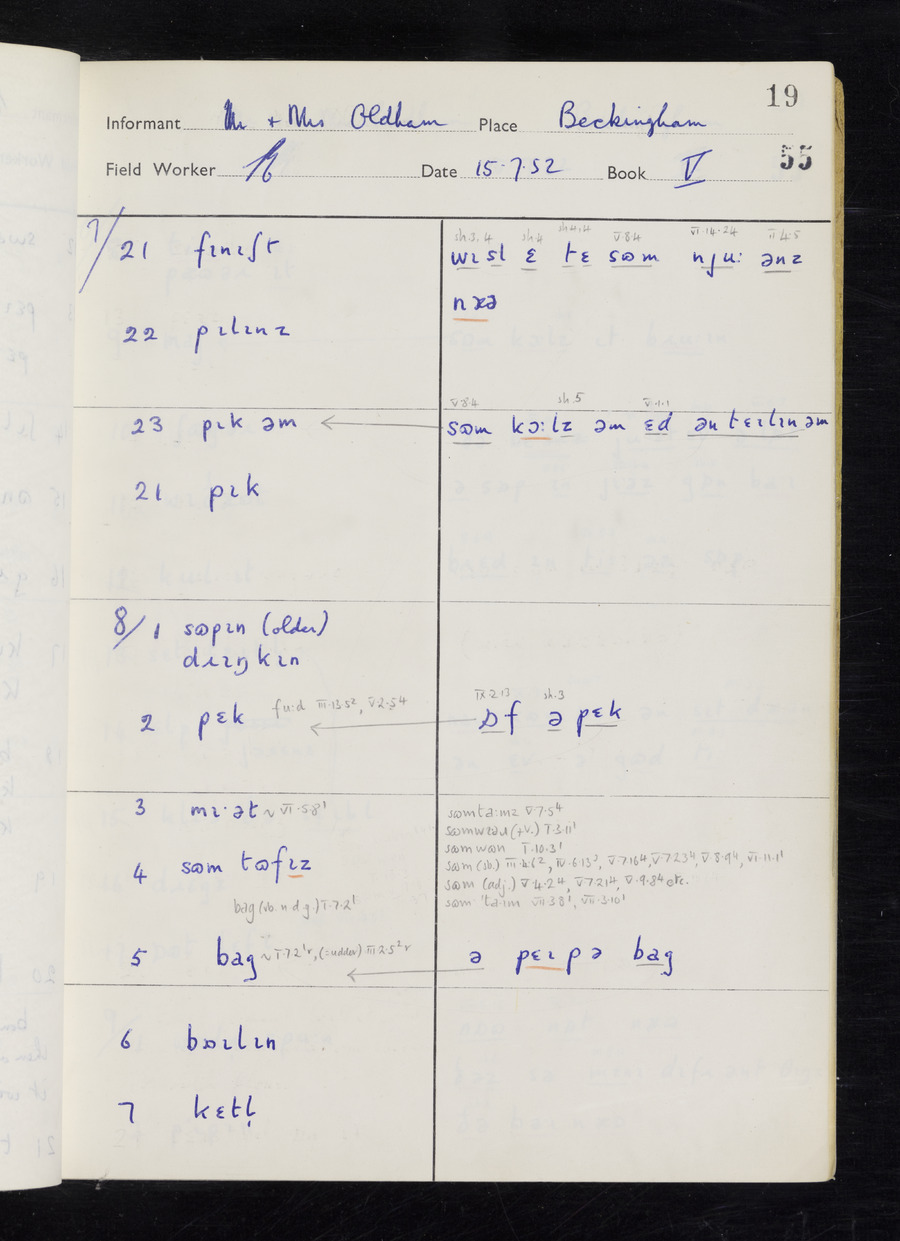 19
Informant Mr + Mrs Oldham Place Beckingham
Field Worker Date 15.7.52 Book V 55
7/
21 fɩnɩʃt
sh.3, 4 sh.4 sh.4,4 V.8.4 VI.14.24 II.4.5
wɩsl ɛ tɛ sɷm nju: ənz
nɔə
22 pɩlɩnz
23 pɩk əm
V.8.4 sh.5 V.1.1
sɷm kɔ:lz əm ɛd ən tɛɩlɩn əm
21 pɩk
8/ 1 sɷpɩn (older)
dɹɩŋkɩn
2 pɛk fu:d III.13.5², V.2.5⁴
IX.2.13 sh.3
ɒf ə pɛk
3 mɩ·ət ~ VI.5.8¹
sɷmta:mz V.7.5⁴
sɷmwɛəɹ (+v.) I.3.11¹
sɷmwɒn I.10.3¹
sɷm (sb.) III.4.6², IV.6.13³, V.7.16⁴, V.7.23⁴, V.8.9⁴, VI.11.1¹
4 sɷm tɷfɩz
sɷm (adj.) V.4.2⁴, V.7.21⁴, V.9.8⁴ etc.
sɷm 'ta:ɩm VII.3.8¹, VII.3.10¹
bag (vb. n.d.g.) I.7.2¹
5 bag ~ I.7.2¹r, (=udder) III.2.5²r
ə pɛɩpə bag
6 bɒɩlɩn
7 kɛtl̩